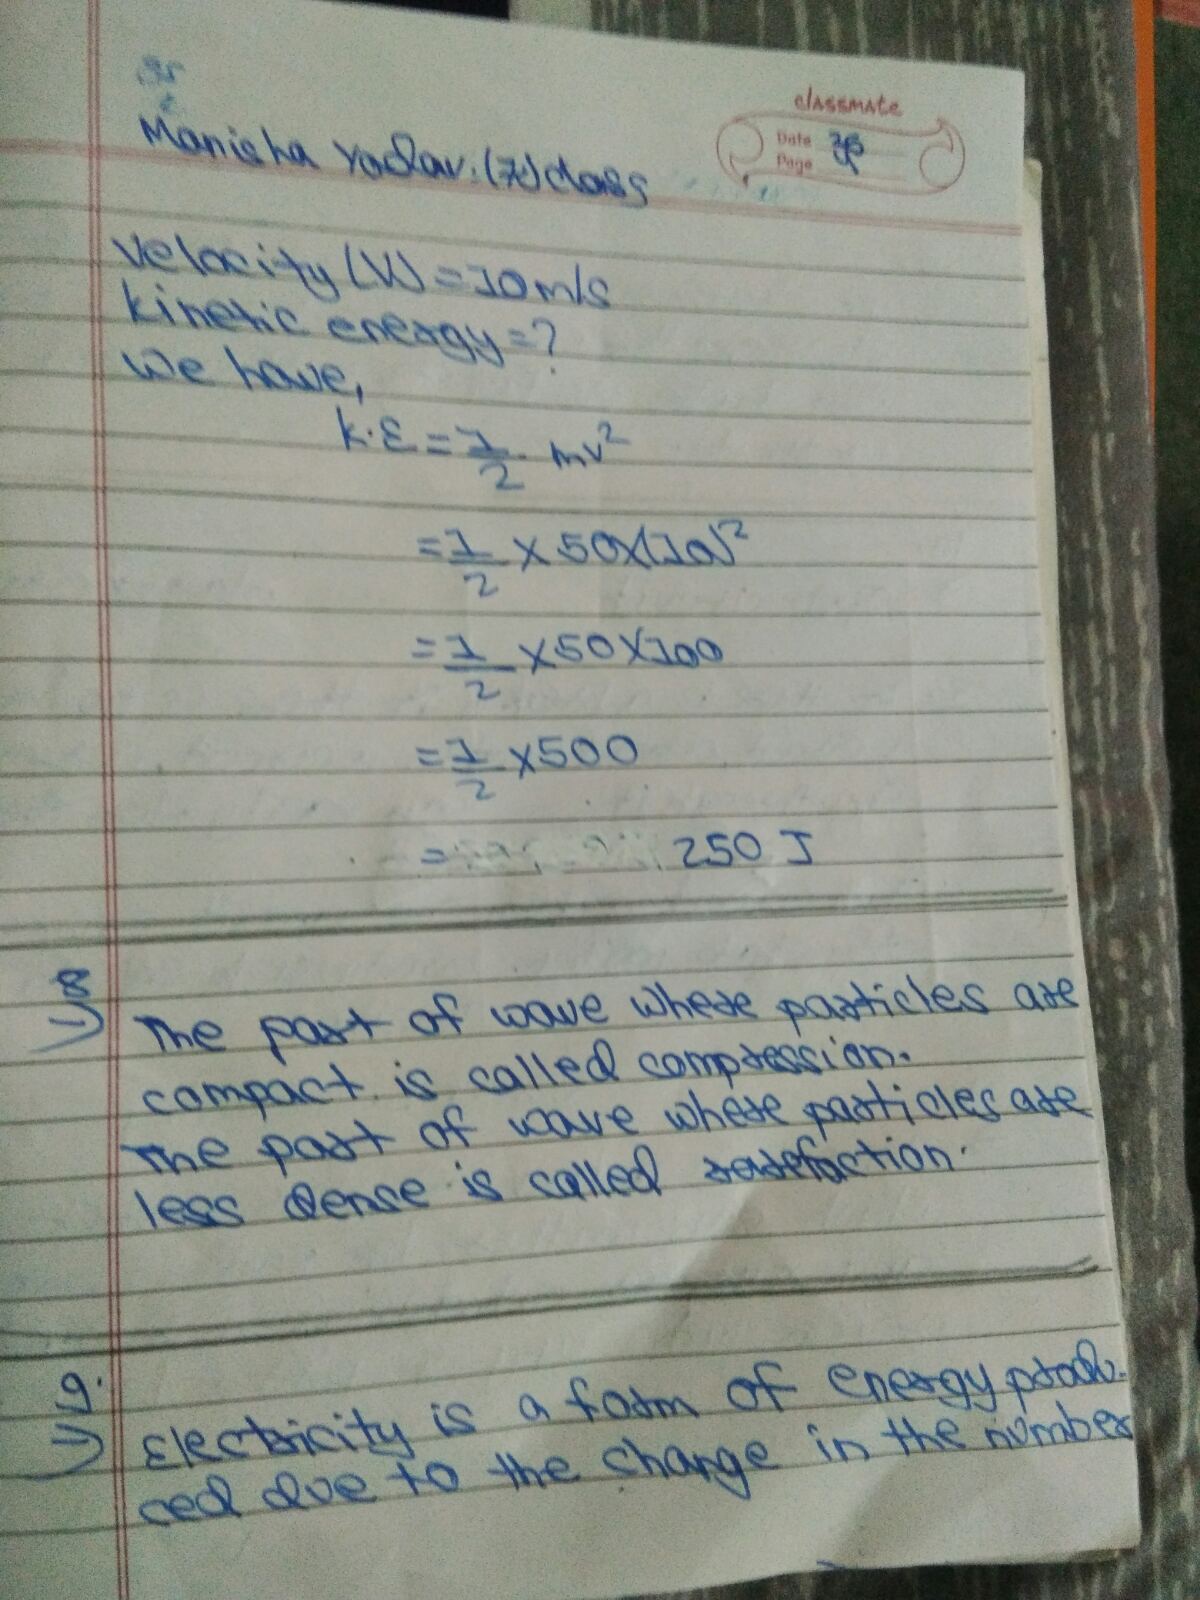 Manisha Yadav. (7) class
classmate
Date
Page
Velocity (V) = 10 m/s
Kinetic energy = ?
We have,
K.E = 1/2 mv²
= 1/2 × 50 × (10)²
= 1/2 × 50 × 100
= 1/2 × 500
= 250 J
8
⇒ The part of wave where particles are
compact is called compression.
The part of wave where particles are
less dense is called rarefaction.
9.
⇒ Electricity is a form of energy produ-
ced due to the change in the number